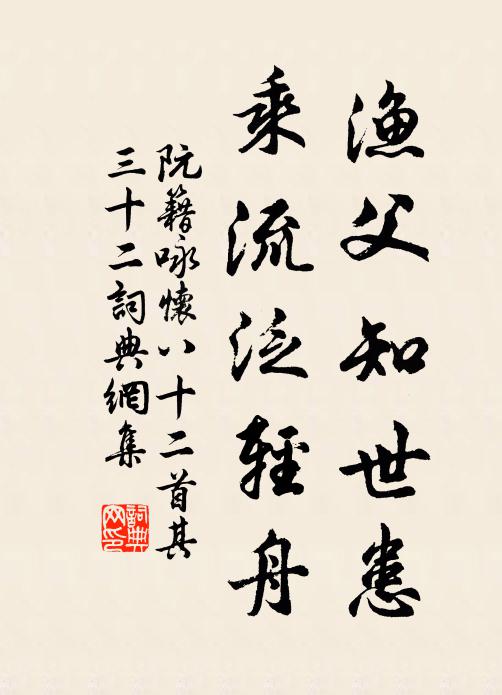 漁父知世患
乘流泛輕舟
阮籍咏懷八十二首其
三十二詞典網集
詞典网印